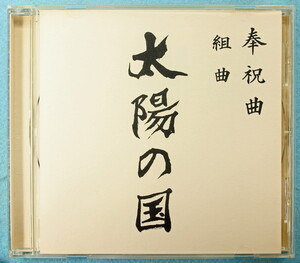 奉祝曲
組曲
太陽の国